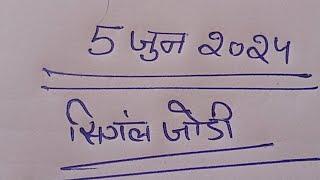 5 जुन २०२५
सिगंल जोडी